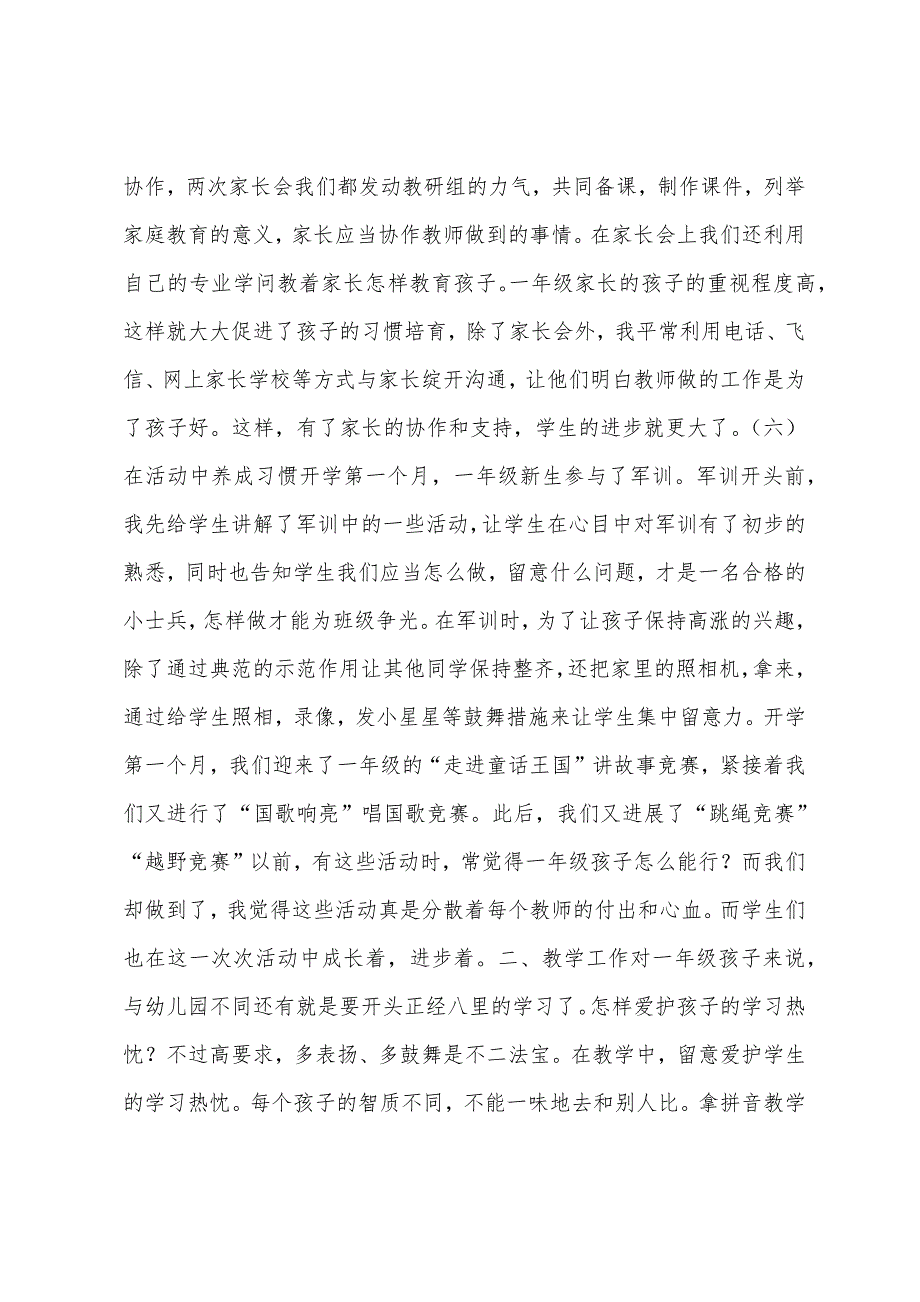 协作，两次家长会我们都发动教研组的力气，共同备课，制作课件，列举
家庭教育的意义，家长应当协作教师做到的事情。在家长会上我们还利用
自己的专业学问教着家长怎样教育孩子。一年级家长的孩子的重视程度高，
这样就大大促进了孩子的习惯培育，除了家长会外，我平常利用电话、飞
信、网上家长学校等方式与家长绽开沟通，让他们明白教师做的工作是为
了孩子好。这样，有了家长的协作和支持，学生的进步就更大了。（六）
在活动中养成习惯开学第一个月，一年级新生参与了军训。军训开头前，
我先给学生讲解了军训中的一些活动，让学生在心目中对军训有了初步的
熟悉，同时也告知学生我们应当怎么做，留意什么问题，才是一名合格的
小士兵，怎样做才能为班级争光。在军训时，为了让孩子保持高涨的兴趣，
除了通过典范的示范作用让其他同学保持整齐，还把家里的照相机，拿来，
通过给学生照相，录像，发小星星等鼓舞措施来让学生集中留意力。开学
第一个月，我们迎来了一年级的“走进童话王国”讲故事竞赛，紧接着我
们又进行了“国歌响亮”唱国歌竞赛。此后，我们又进展了“跳绳竞赛”
“越野竞赛”以前，有这些活动时，常觉得一年级孩子怎么能行？而我们
却做到了，我觉得这些活动真是分散着每个教师的付出和心血。而学生们
也在这一次次活动中成长着，进步着。二、教学工作对一年级孩子来说，
与幼儿园不同还有就是要开头正经八里的学习了。怎样爱护孩子的学习热
忱？不过高要求，多表扬、多鼓舞是不二法宝。在教学中，留意爱护学生
的学习热忱。每个孩子的智质不同，不能一味地去和别人比。拿拼音教学